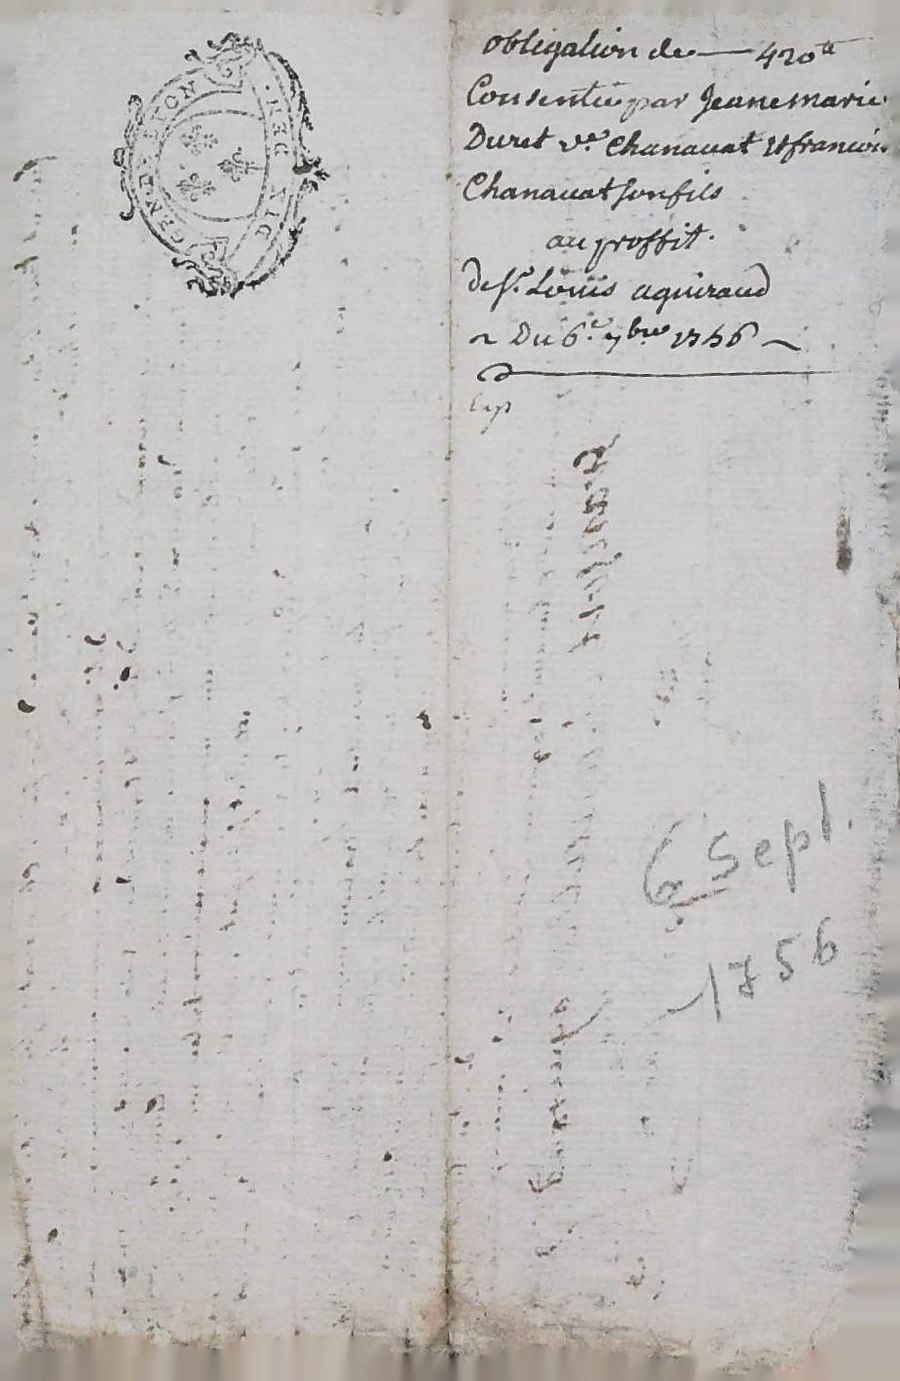 GEN. DE LYON
obligation de — 420ᵗᵗ
Consentie par Jeane marie
Duret vᵉ. Chanauat Et francois
Chanauat son fils
au proffit.
De sʳ. Louis aguiraud
Du 6.ᵉ 7bre 1756
Exp
6 Sept.
1756